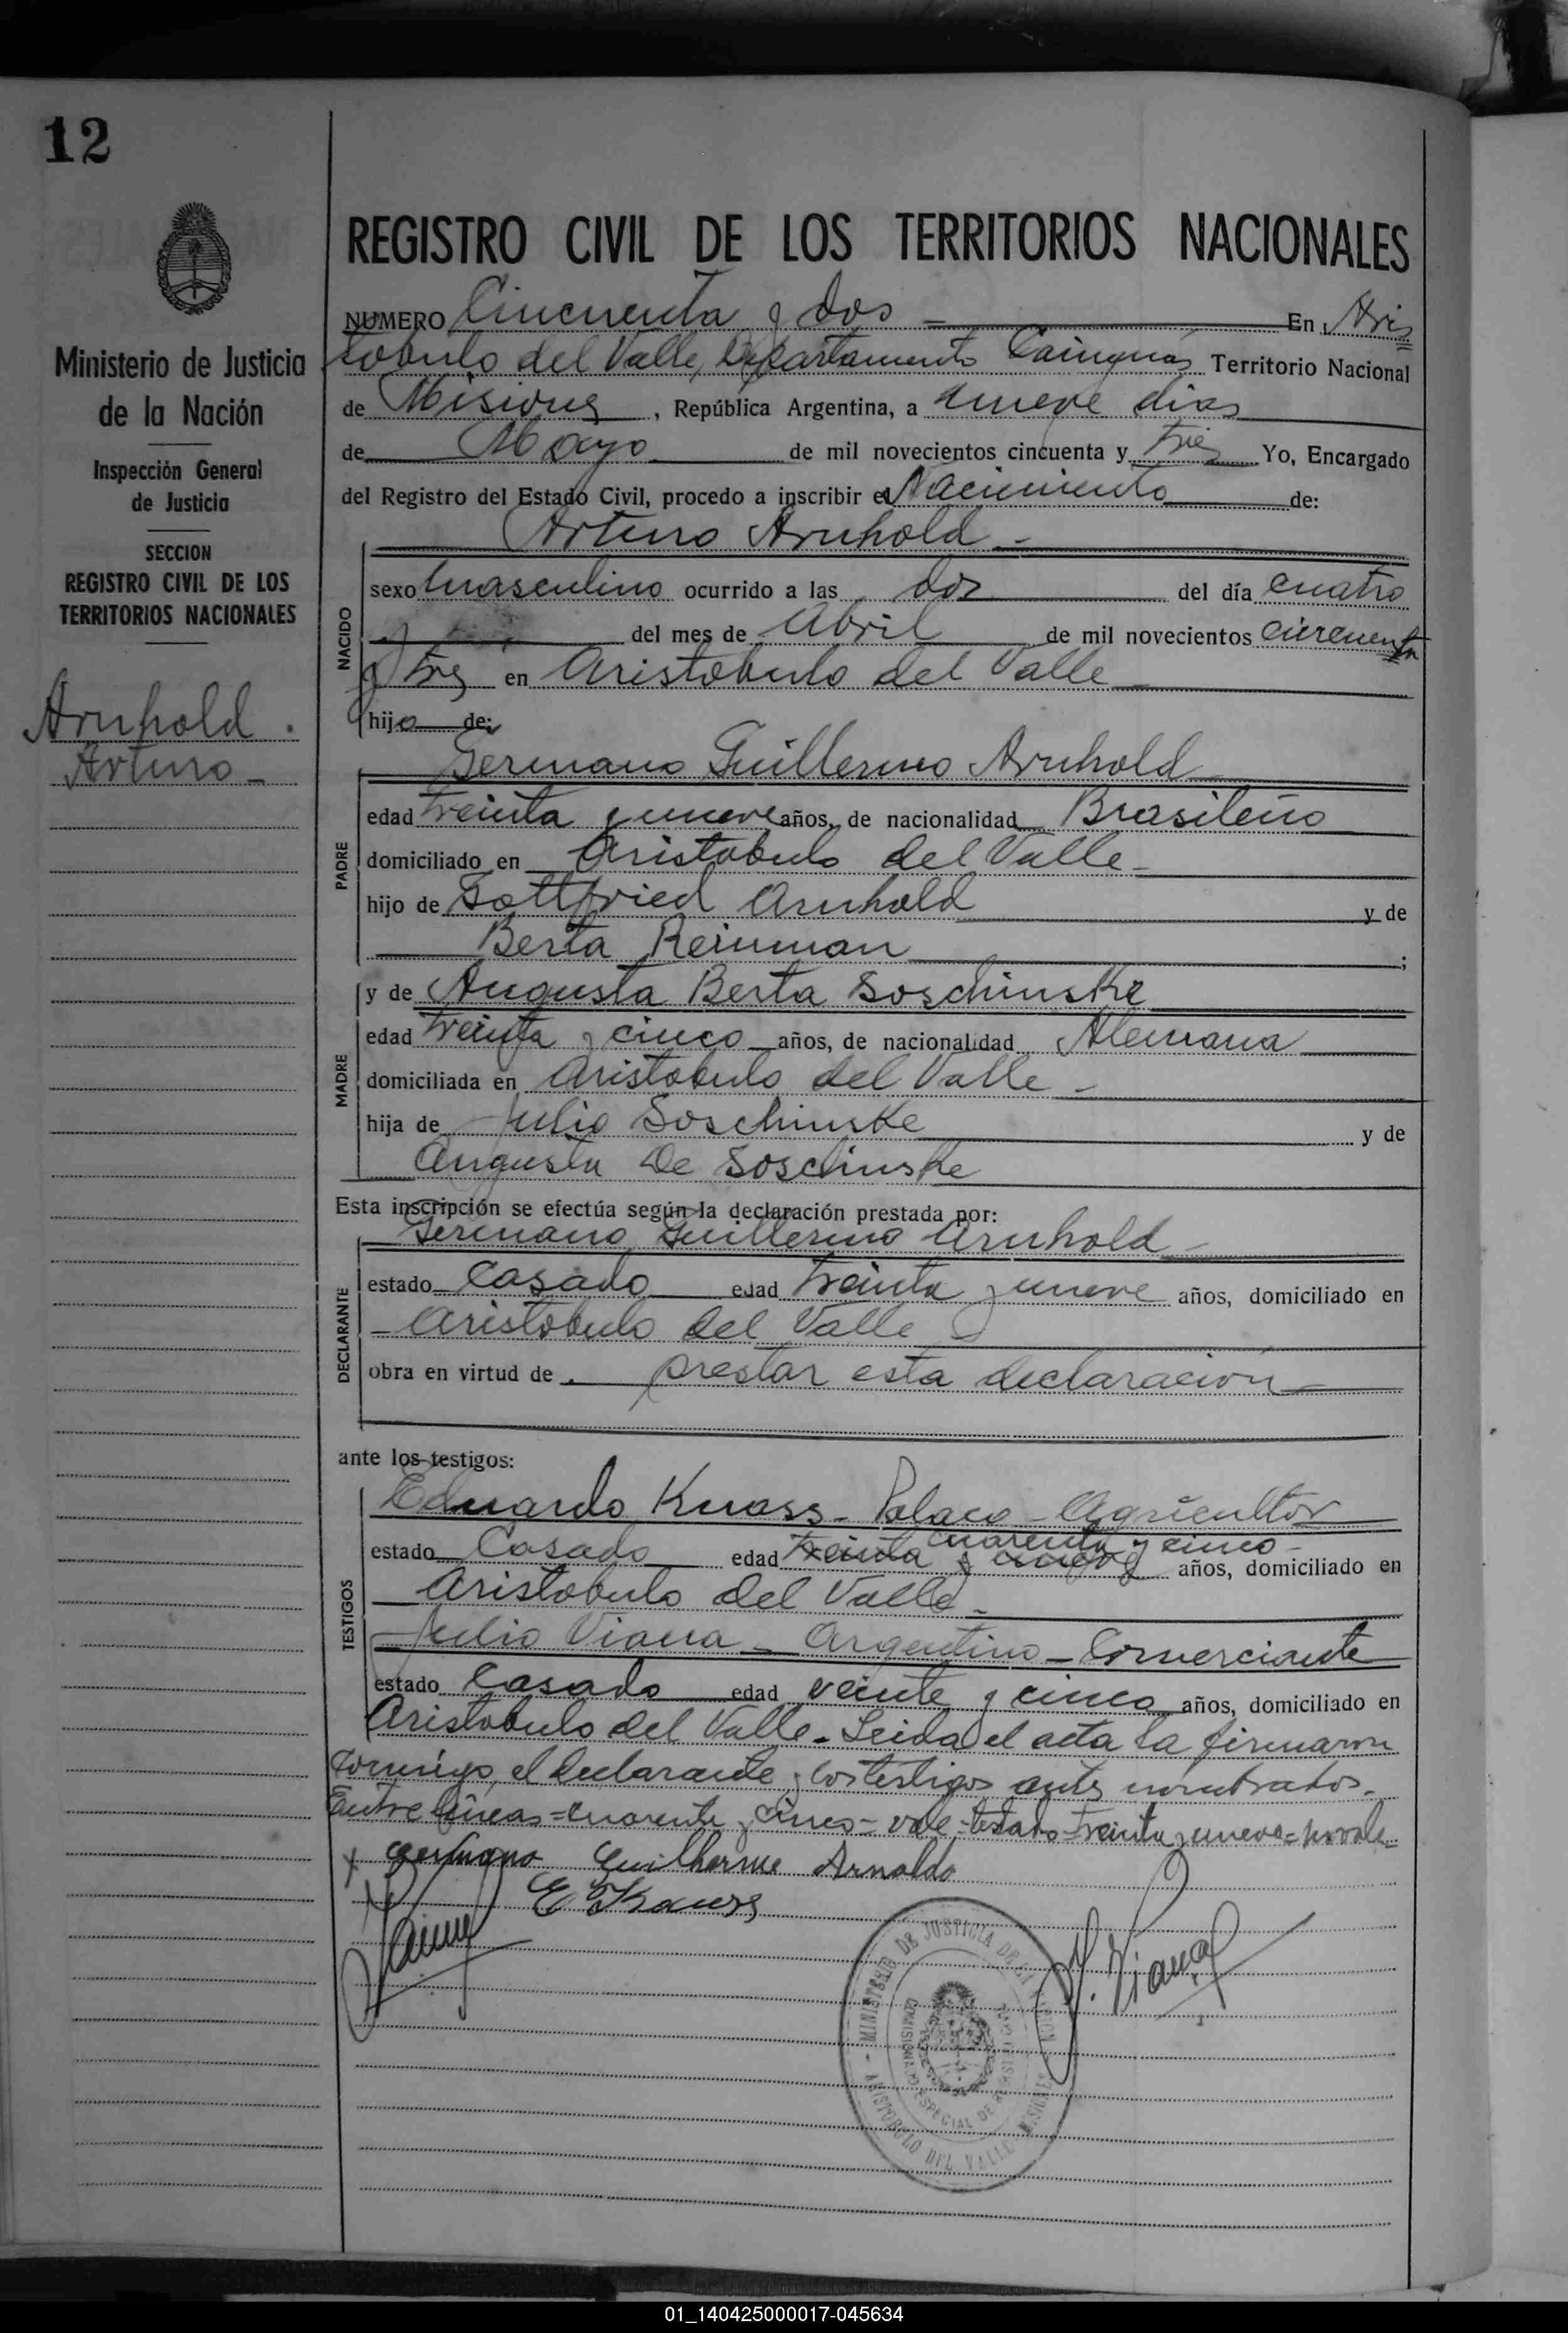 12
REGISTRO CIVIL DE LOS TERRITORIOS NACIONALES
Ministerio de Justicia
de la Nación
Inspección General
de Justicia
SECCION
REGISTRO CIVIL DE LOS
TERRITORIOS NACIONALES
Arnhold
Arturo
NUMERO Cincuenta y dos En Aris
tobulo del Valle, Departamento Cainguás Territorio Nacional
de Misiones, República Argentina, a nueve dias
de Mayo de mil novecientos cincuenta y tres Yo, Encargado
del Registro del Estado Civil, procedo a inscribir el Nacimiento de:
Arturo Arnhold
NACIDO
sexo masculino ocurrido a las dos del día cuatro
del mes de Abril de mil novecientos cincuenta
y tres en Aristobulo del Valle
hijo de:
PADRE
Germano Guillermo Arnhold
edad treinta y nueve años, de nacionalidad Brasileño
domiciliado en Aristobulo del Valle
hijo de Gottfried Arnhold y de
Berta Reinman;
MADRE
y de Augusta Berta Soschinske
edad treinta y cinco años, de nacionalidad Alemana
domiciliada en Aristobulo del Valle
hija de Julio Soschinske y de
Augusta De Soschinske
Esta inscripción se efectúa según la declaración prestada por:
DECLARANTE
Germano Guillermo Arnhold
estado Casado edad treinta y nueve años, domiciliado en
Aristobulo del Valle
obra en virtud de prestar esta declaracion
ante los testigos:
TESTIGOS
Eduardo Knass - Polaco - Agricultor
cuarenta y cinco
estado Casado edad treinta y nueve años, domiciliado en
Aristobulo del Valle
Julio Viana - Argentino - Comerciante
estado Casado edad veinte y cinco años, domiciliado en
Aristobulo del Valle. Leida el acta la firmaron
conmigo, el declarante y los testigos antes nombrados.
Entre lineas = cuarenta y cinco = vale - testado = treinta y nueve = no vale =
x Germano Guilherme Arnoldo
J. Viana
MINISTERIO DE JUSTICIA DE LA NACION
ARISTOBULO DEL VALLE
01_140425000017-045634